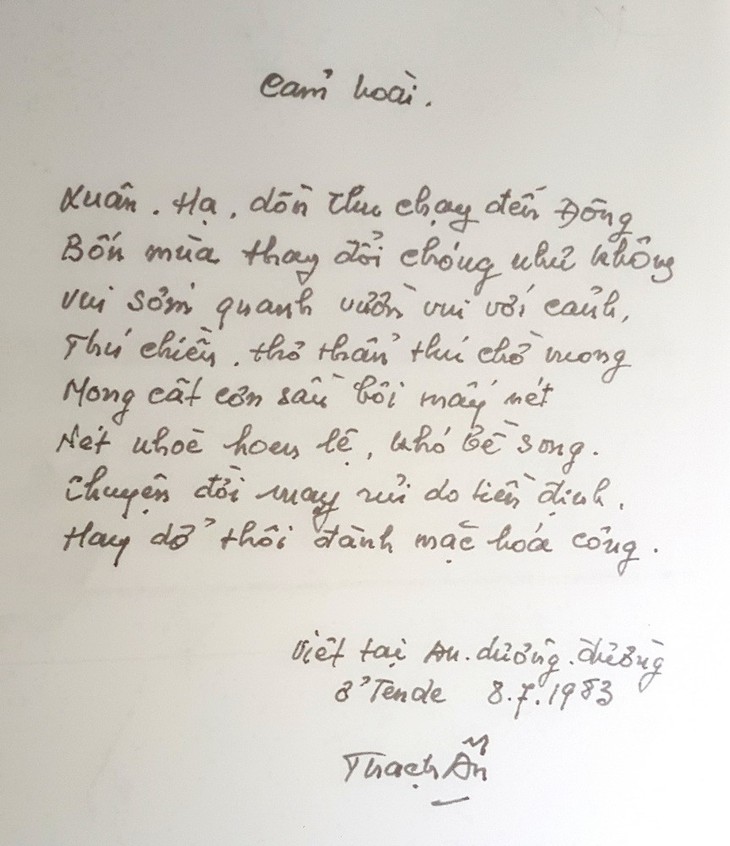 Cảm hoài.
Xuân. Hạ, dồn Thu chạy đến Đông
Bốn mùa thay đổi chóng như không
Vui sớm quanh vườn vui với cảnh,
Thú chiều, thơ thẩn thú chờ mong
Mong cất cơn sầu bôi mấy nét
Nét nhoè hoen lệ, khó bề song.
Chuyện đời may rủi do tiền định,
Hay dở thôi đành mặc hoá công.
Viết tại An. dưỡng. đường
ở Tende 8.7.1983
Thạch Ẩn